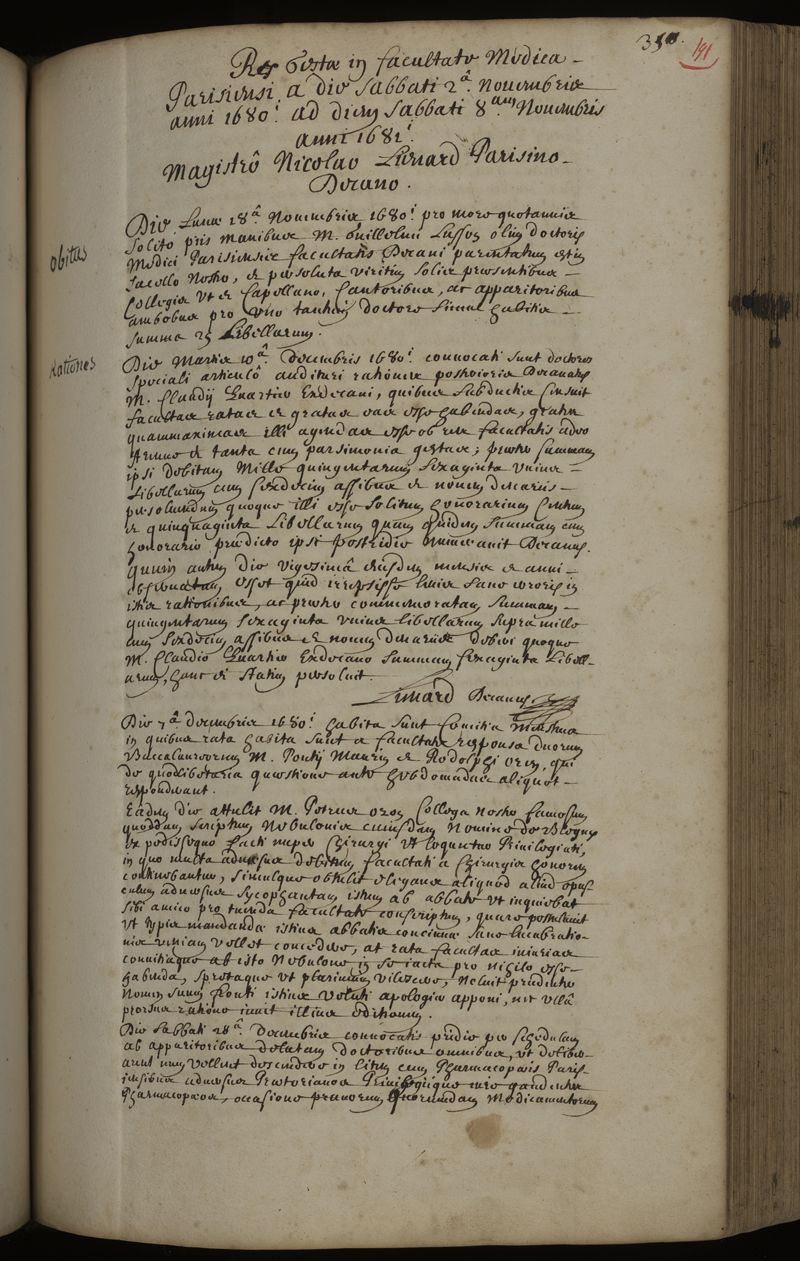 350.
191
Res Gestæ in facultate Medica
Parisiensi, a die Sabbati 2.ª Nouembris
anni 1680.i ad diem Sabbati 8.am Nouembris
anni 1681.i
Magistrô Nicolao Lienard Parisino
Decano.
obitus
Die Lunæ 18.ª Nouembris 1680.i pro more quotannis
solito piis manibus M. Guillelmi Lusson olim doctoris
Medici Parisiensis facultatis Decani parentatum est in
sacello nostro, et persoluta viritim solis præsentibus
Collegis vt et Capellano, Cantoribus, ac apparitoribus
ambobus pro vno tantum doctore simul habitis
summa 25 Libellarum.
Rationes
Die Martis 10.ª Decembris 1680.i conuocati sunt doctores
speciali articulô audituri rationes posterioris Decanatus
M. Claudij Quartier Exdecani, quibus subductis censuit
facultas ratas et gratas eas esse habendas, grates
quammaximas illi agendas esse ob res facultatis adeo
strenue et tanta cum parsimonia gestas; porro summam
ipsi debitam Mille quingentarum sexaginta vnius
Libellarum cum sexdecim assibus et nouem denariis
persoluendum quoque illi esse solitum honorarium Centum
et quinquaginta Libellarum quam quidem summam cum
honorario prædicto ipsi postridie numerauit Decanus.
quum autem die vigesimâ eiusdem mensis et anni
obseruatum esset quid irrepsisse leuis sane erroris in
istis rationibus, ac porro commemoratam summam
quingentarum sexaginta vnius libellarum supra mille
cum sexdecim assibus et nouem denariis deberi quoque
M. Claudio Quartier Exdecano summam sexaginta Libell-
arum, hanc ei statim persoluit.
Lienard Decanus
Die 7.ª decembris 1680.i habita sunt Comitia Menstrua
in quibus rata habita sunt a facultate responsa duorum
Baccalaureorum M. Pontij Maurin et Rodolphi oren, qui
de quodlibetaria quæstione ante hebdomadas aliquot
responderant.
Eadem die attulit M. Petrus oron Collega noster famosum
quoddam scriptum Nebulonis cuiusdam Nomine de Blegny
ex pedissequo facti nuper Chirurgi vt loquuntur Priuilegiati,
in quo multa aduersus debitum facultati a Chirurgis honorem
continebantur, simulque obtulit elegans aliquod aliud opus-
culum aduersus sycophantam istum ab abbate vt inquiebat
sibi amico pro tuenda facultate conscriptum, quare postulauit
vt typis mandanda istius abbatis concinnæ sane lucubratio-
nis veniam vellet concedere, at rata facultas iniurias
conuitiaque ab isto Nebulone in se iacta pro nihilo esse
habenda, spretaque vt plurimum vilescere, Noluit prudenter
Nomen suum fronti istius veluti apologiæ apponi, nec vllâ
prorsus ratione iuuit illius editionem.
Die Sabbati 28.ª Decembris conuocatis pridie per schedulam
ab apparitoribus delatam doctoribus omnibus, vt delibe-
arent num vellent descendere in litem cum Pharmacopæis Paris-
iensibus aduersus Prætorianos Priuilegiique iure gaudentes
Pharmacopæos, occasione prauorum quorumdam Medicamentorum